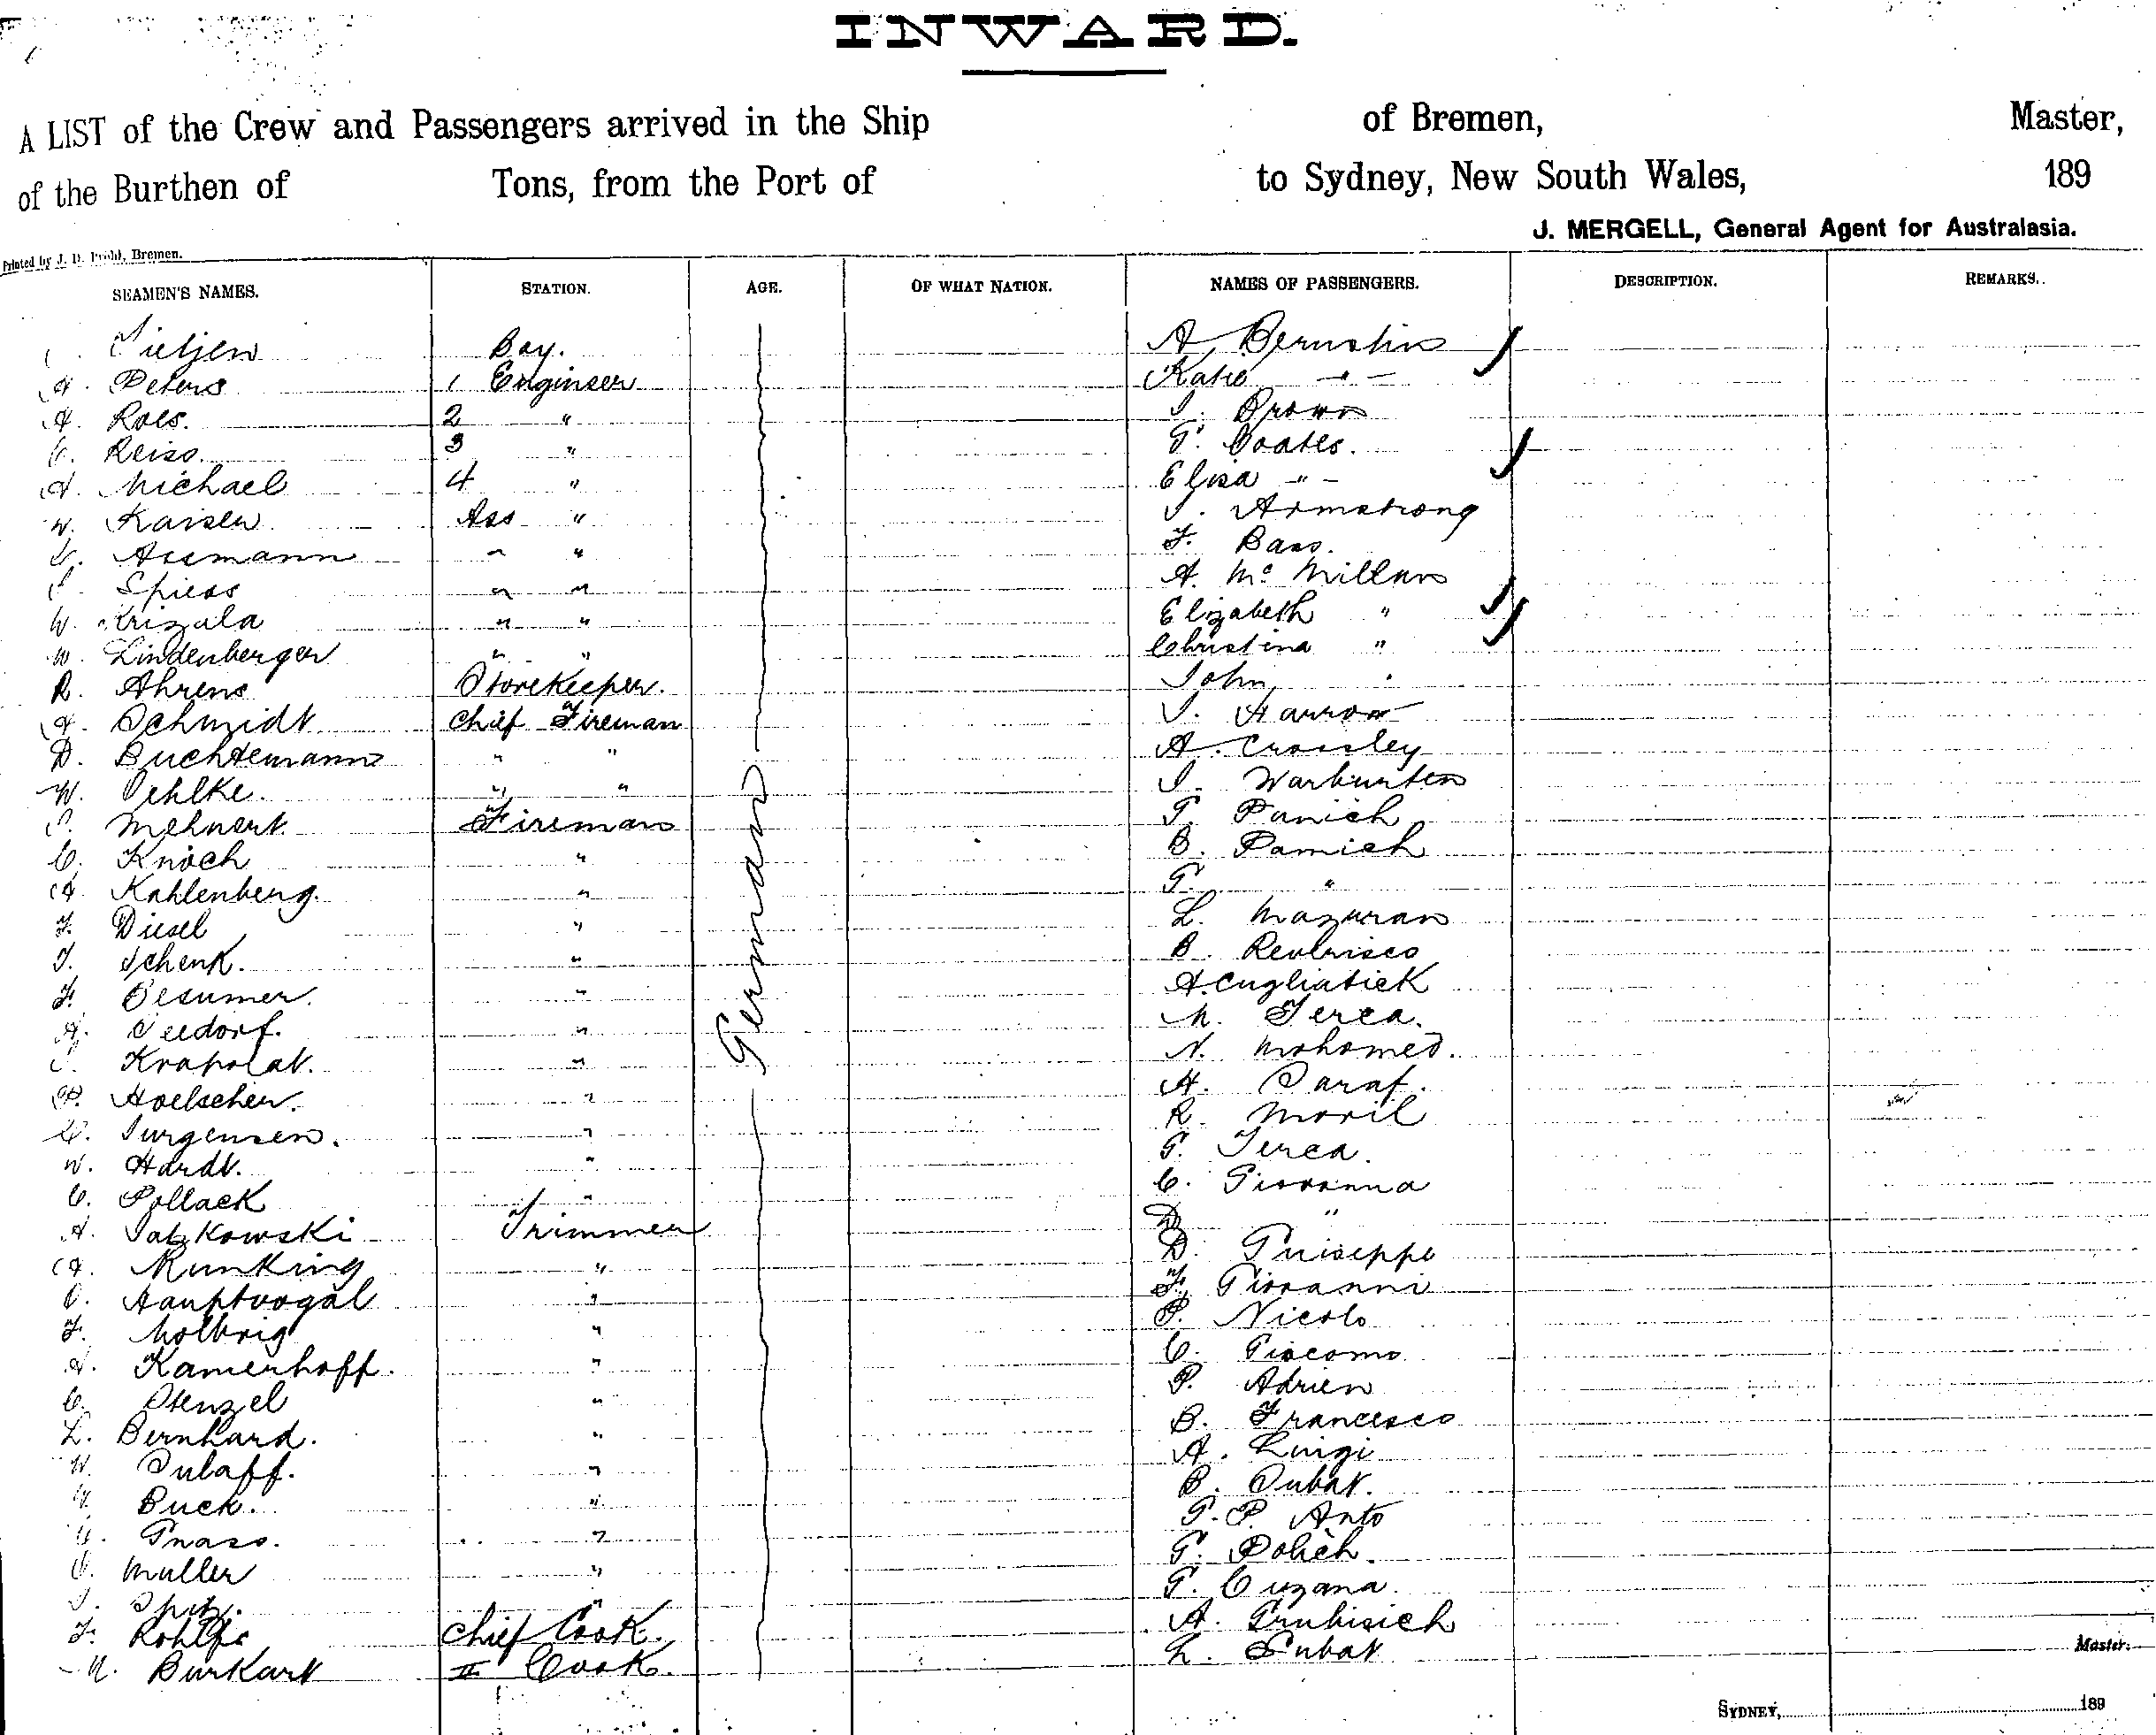 INWARD.
A LIST of the Crew and Passengers arrived in the Ship of Bremen, Master,
of the Burthen of Tons, from the Port of to Sydney, New South Wales, 189
J. MERGELL, General Agent for Australasia.
Printed by J. D. Prohl, Bremen.
SEAMEN'S NAMES. STATION. AGE. OF WHAT NATION. NAMES OF PASSENGERS. DESCRIPTION. REMARKS.
Tietjen Boy. A. Bernstein
H. Peters 1 Enginseer Katie - " -
A. Roes. 2 " J. Brown
C. Reiss. 3 " G. Coates.
A. Michael 4 " Elisa - " -
W. Kaiser Ass " J. Armstrong
Assmann " " F. Bass.
Spiess " " A. Mc Millan
W. Krizala " " Elizabeth "
W. Lindenberger " " Christina "
R. Ahrens Storekeeper. John "
A. Schmidt Chief Fireman J. Harrow
D. Buchtemann " " A. Crossley
W. Oehlke. " " J. Warburton
Mehnert. Fireman G. Panich
C. Knoch " B. Pamich
A. Kahlenberg. " G. "
F. Diesel " L. Mazuran
J. Schenk. " B. Revlrisco
F. " A. Cugliatick
A. Seedorf. " M. Jerca.
Krapolat. " N. Mohomed.
Hoelscher. " H. Saraf.
C. Jurgensen. " R. Moril
W. Hardt. " G. Jerca.
C. Pollack " C. Giovanna
A. Satzkowski Trimmer D. "
A. Runking " D. Guiseppe
O. Hauptvogal " F. Giovanni
F. Molbrig " P. Nicolo
A. Kamerhoff. " C. Giacomo
C. Stenzel " P. Adrien
L. Bernhard. " B. Francesco
W. Sulaff. " A. Luigi
Buck. " B. Subat.
Gnass. " G. P. Anto
Muller " G. Polich.
J. Spitz. " G. Cuzana.
F. Rohlfs Chief Cook. A. Grubisich
Burkart II Cook. L. Subat
Master.
German
SYDNEY, 189